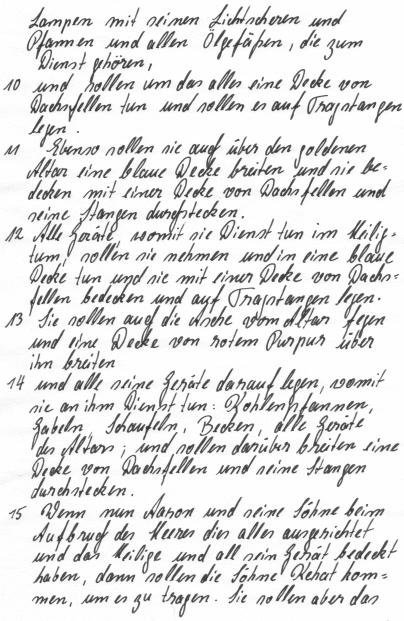 Lampen mit seinen Lichtscheren und
Pfannen und allen Ölgefäßen, die zum
Dienst gehören,
10 und sollen um das alles eine Decke von
Dachsfellen tun und sollen es auf Tragstangen
legen.
11 Ebenso sollen sie auch über den goldenen
Altar eine blaue Decke breiten und sie be=
decken mit einer Decke von Dachsfellen und
seine Stangen durchstecken.
12 Alle Geräte, womit sie Dienst tun im Heilig=
tum, sollen sie nehmen und in eine blaue
Decke tun und sie mit einer Decke von Dachs=
fellen bedecken und auf Tragstangen legen.
13 Sie sollen auch die Asche vom Altar fegen
und eine Decke von rotem Purpur über
ihn breiten
14 und alle seine Geräte darauf legen, womit
sie an ihm Dienst tun: Kohlenpfannen,
Gabeln, Schaufeln, Becken, alle Geräte
des Altars; und sollen darüber breiten eine
Decke von Dachsfellen und seine Stangen
durchstecken.
15 Wenn nun Aaron und seine Söhne beim
Aufbruch des Heeres dies alles ausgerichtet
und das Heilige und all sein Gerät bedeckt
haben, dann sollen die Söhne Kehat kom=
men, um es zu tragen. Sie sollen aber das